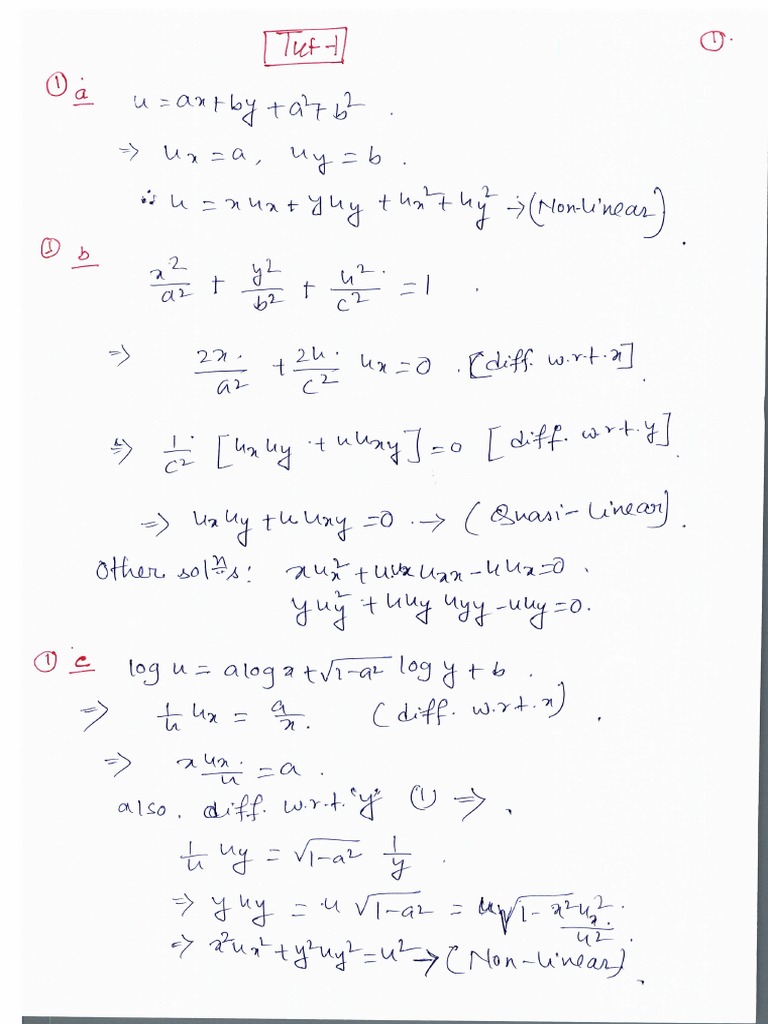 Tut-1
①.
① a u = ax + by + a² + b².
⇒ u_x = a, u_y = b.
∴ u = x u_x + y u_y + u_x² + u_y² → (Non-linear).
① b x²/a² + y²/b² + u²/c² = 1.
⇒ 2x/a² + 2u/c² u_x = 0. [diff. w.r.t. x].
⇒ 1/c² [u_x u_y + u u_xy] = 0 [diff. w.r.t. y].
⇒ u_x u_y + u u_xy = 0. → (Quasi-linear).
Other solⁿs: x u_x² + u x u_xx − u u_x = 0.
y u_y² + u y u_yy − u u_y = 0.
① c log u = a log x + √(1−a²) log y + b.
⇒ 1/u u_x = a/x. (diff. w.r.t. x).
⇒ x u_x/u = a.
also. diff. w.r.t. "y" ① ⇒.
1/u u_y = √(1−a²) 1/y.
⇒ y u_y = u √(1−a²) = u √(1 − x² u_x²/u²).
⇒ x² u_x² + y² u_y² = u² → (Non-linear).